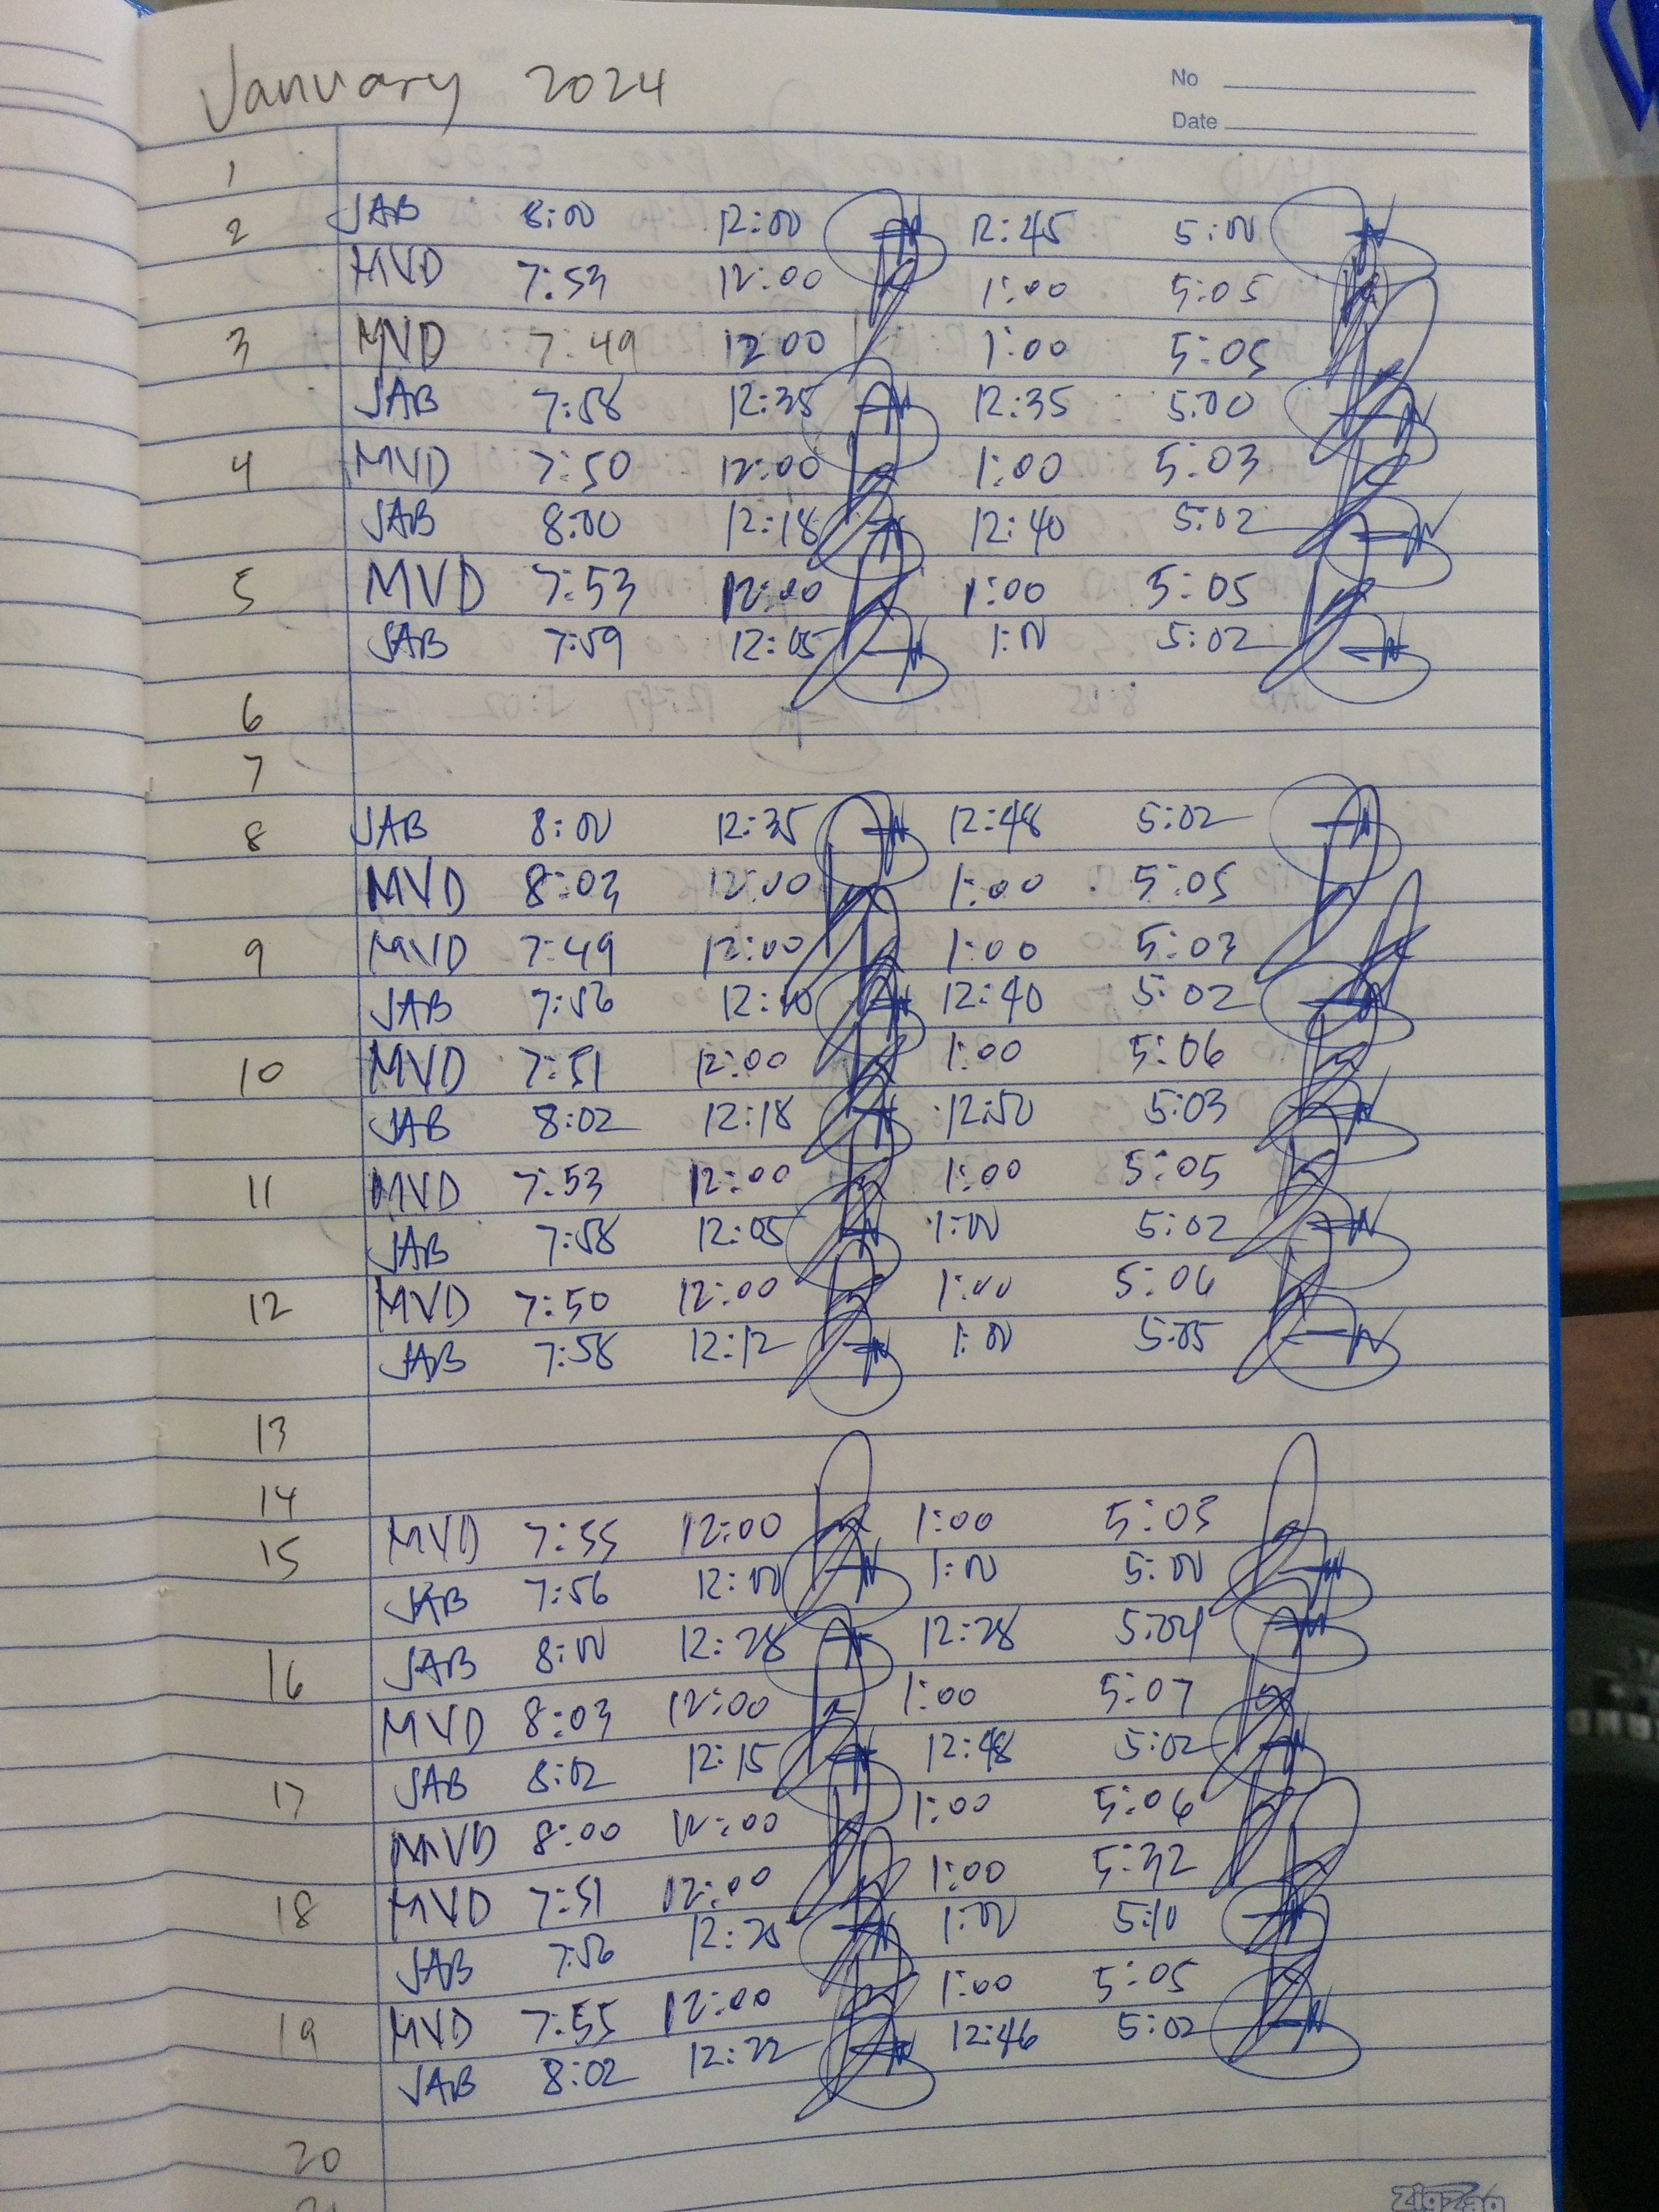 January 2024
No
Date
1
2 JAB 8:00 12:00 12:45 5:00
MVD 7:53 12:00 1:00 5:05
3 MVD 7:49 12:00 1:00 5:05
JAB 7:58 12:35 12:35 5:00
4 MVD 7:50 12:00 1:00 5:03
JAB 8:00 12:18 12:40 5:02
5 MVD 7:53 12:00 1:00 5:05
JAB 7:59 12:05 1:00 5:02
6
7
8 JAB 8:00 12:35 12:48 5:02
MVD 8:03 12:00 1:00 5:05
9 MVD 7:49 12:00 1:00 5:03
JAB 7:56 12:40 5:02
10 MVD 7:51 12:00 1:00 5:06
JAB 8:02 12:18 12:50 5:03
11 MVD 7:53 12:00 1:00 5:05
JAB 7:58 12:05 1:00 5:02
12 MVD 7:50 12:00 1:00 5:06
JAB 7:58 12:12 1:00 5:05
13
14
15 MVD 7:55 12:00 1:00 5:03
JAB 7:56 12:00 1:00 5:00
16 JAB 8:00 12:28 12:28 5:04
MVD 8:03 12:00 1:00 5:07
17 JAB 8:02 12:15 12:48 5:02
MVD 8:00 12:00 1:00 5:06
18 MVD 7:51 12:00 1:00 5:32
JAB 7:56 12:25 1:00 5:10
19 MVD 7:55 12:00 1:00 5:05
JAB 8:02 12:22 12:46 5:02
20
21
ZigZag